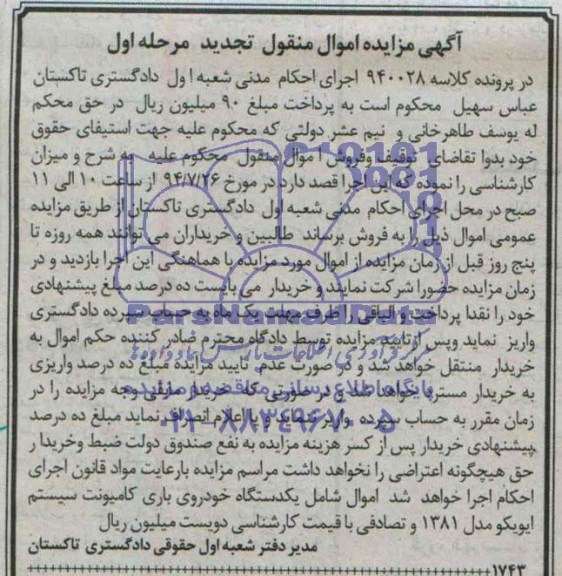 آگهی مزایده اموال منقول تجدید مرحله اول
در پرونده کلاسه ۹۴۰۰۲۸ اجرای احکام مدنی شعبه اول دادگستری تاکستان
عباس سهیل محکوم است به پرداخت مبلغ ۹۰ میلیون ریال در حق محکم
له یوسف طاهرخانی و نیم عشر دولتی که محکوم علیه جهت استیفای حقوق
خود بدوا تقاضای توقیف وفروش اموال منقول محکوم علیه به شرح و میزان
کارشناسی را نموده که این اجرا قصد دارد در مورخ ۹۴/۷/۲۶ از ساعت ۱۰ الی ۱۱
صبح در محل اجرای احکام مدنی شعبه اول دادگستری تاکستان از طریق مزایده
عمومی اموال ذیل را به فروش برساند طالبین و خریداران می توانند همه روزه تا
پنج روز قبل از زمان مزایده از اموال مورد مزایده با هماهنگی این اجرا بازدید و در
زمان مزایده حضورا شرکت نمایند و خریدار می بایست ده درصد مبلغ پیشنهادی
خود را نقدا پرداخت و الباقی را ظرف مهلت یک ماه به حساب سپرده دادگستری
واریز نماید وپس از تایید مزایده توسط دادگاه محترم صادر کننده حکم اموال به
خریدار منتقل خواهد شد و در صورت عدم تایید مزایده مبلغ ده درصد واریزی
به خریدار مسترد خواهد شد و در صورتی که خریدار مابقی وجه مزایده را در
زمان مقرر به حساب سپرده واریز ننماید و یا اعلام انصراف نماید مبلغ ده درصد
پیشنهادی خریدار پس از کسر هزینه مزایده به نفع صندوق دولت ضبط وخریدار
حق هیچگونه اعتراضی را نخواهد داشت مراسم مزایده بارعایت مواد قانون اجرای
احکام اجرا خواهد شد اموال شامل یکدستگاه خودروی باری کامیونت سیستم
ایویکو مدل ۱۳۸۱ و تصادفی با قیمت کارشناسی دویست میلیون ریال
مدیر دفتر شعبه اول حقوقی دادگستری تاکستان
۱۷۴۳
ParsNamadData
پایگاه اطلاع رسانی مناقصه و مزایده
۰۲۱-۸۸۳۴۹۶۷۰-۵